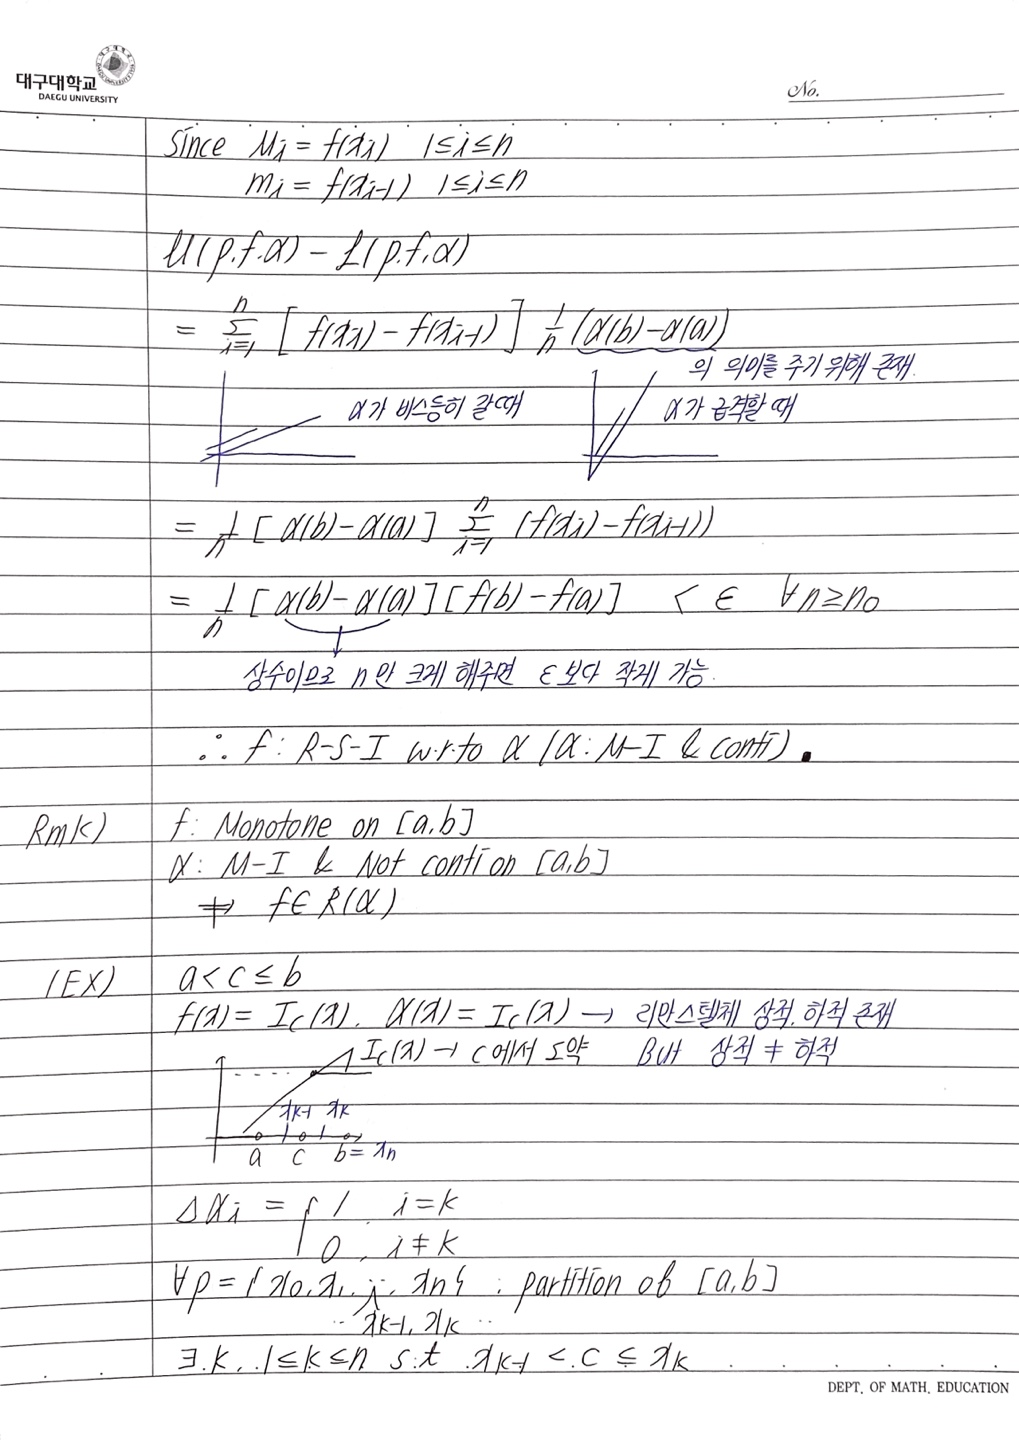 대구대학교
DAEGU UNIVERSITY
No.
Since Mi = f(xi) 1≤i≤n
mi = f(xi-1) 1≤i≤n
U(p.f.α) - L(p.f.α)
= Σ_{i=1}^{n} [f(xi) - f(xi-1)] 1/n (α(b)-α(a))
의 의미를 주기 위해 존재.
α가 비스듬히 갈때
α가 급격할 때
= 1/n [α(b)-α(a)] Σ_{i=1}^{n} (f(xi)-f(xi-1))
= 1/n [α(b)-α(a)][f(b)-f(a)] < ε ∀n≥n₀
상수이므로 n만 크게 해주면 ε보다 작게 가능.
∴ f: R-S-I w.r.to α (α: M-I & conti).
Rmk) f: Monotone on [a,b]
α: M-I & Not conti on [a,b]
⇏ f∈R(α)
(EX) a<c≤b
f(x) = Ic(x), α(x) = Ic(x) → 리만스텔체 상적, 하적 존재
Ic(x) → c에서 도약 But 상적 ≠ 하적
xk-1 xk
a c b = xn
Δαi = { 1, i=k
0, i≠k
∀p = {x0, x1, ..., xn} : partition of [a,b]
.. xk-1, xk ..
∃.k, 1≤k≤n s.t xk-1 < c ≤ xk
DEPT. OF MATH. EDUCATION